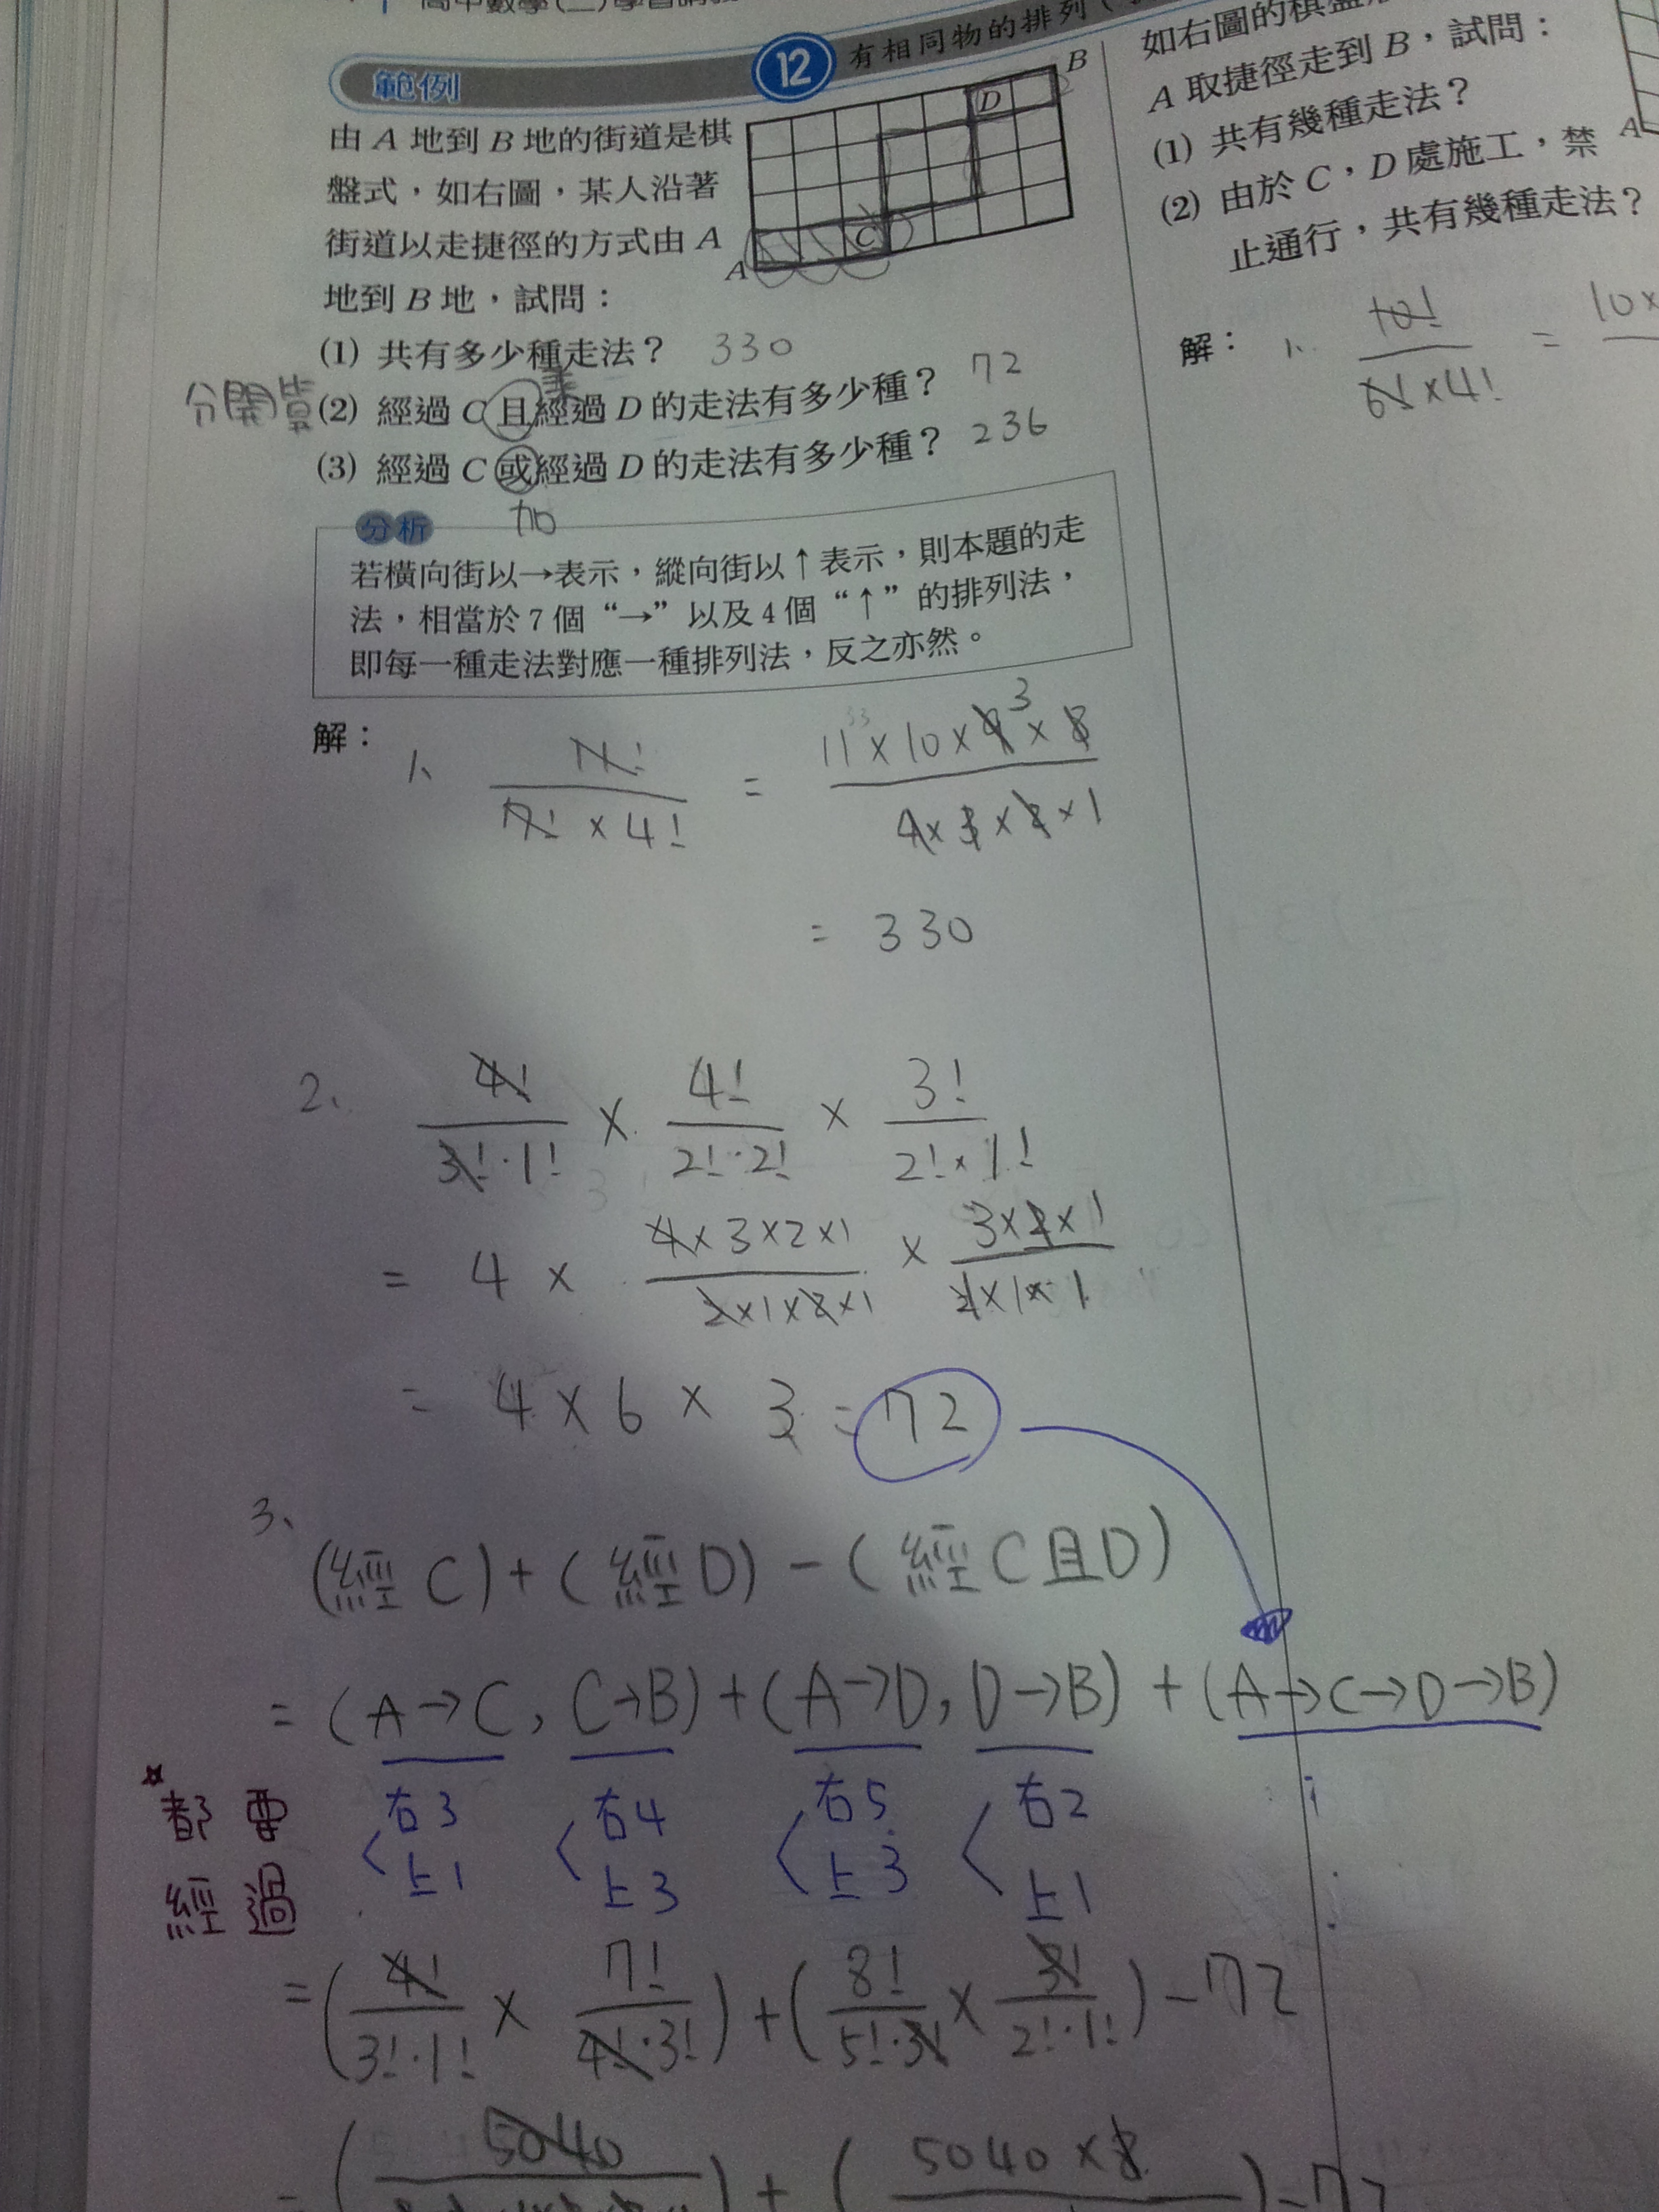 高中數學(二)學習講義
範例
12 有相同物的排列
由 A 地到 B 地的街道是棋
盤式,如右圖,某人沿著
街道以走捷徑的方式由 A
地到 B 地,試問:
A
B
C
D
(1) 共有多少種走法? 330
分開算
乘
(2) 經過 C 且經過 D 的走法有多少種? 72
(3) 經過 C 或經過 D 的走法有多少種? 236
加
分析
若橫向街以→表示,縱向街以↑表示,則本題的走
法,相當於 7 個“→”以及 4 個“↑”的排列法,
即每一種走法對應一種排列法,反之亦然。
解:
1、 11! / 7! × 4! = 11 × 10 × 9 3 × 8 / 4 × 3 × 2 × 1
= 330
2、 4! / 3!·1! × 4! / 2!·2! × 3! / 2! × 1!
= 4 × 4×3×2×1 / 2×1×2×1 × 3×2×1 / 2×1×1
= 4 × 6 × 3 = 72
3、
(經 C) + (經 D) - (經 C 且 D)
= (A→C, C→B) + (A→D, D→B) + (A→C→D→B)
都要
經過
右3 右4 右5 右2
上1 上3 上3 上1
= (4! / 3!·1! × 7! / 4!·3!) + (8! / 5!·3! × 3! / 2!·1!) - 72
= (5040 ) + (5040 × 8 ) - 72
如右圖的棋盤
A 取捷徑走到 B,試問:
(1) 共有幾種走法?
(2) 由於 C,D 處施工,禁
止通行,共有幾種走法?
A
解: 1、 10! / 6! × 4! = 10×